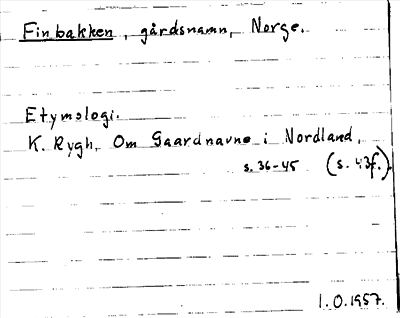 Finbakken, gårdsnamn, Norge.
Etymologi.
K. Rygh, Om Gaardnavne i Nordland,
s. 36-45 (s. 43f.).
I.O. 1957.